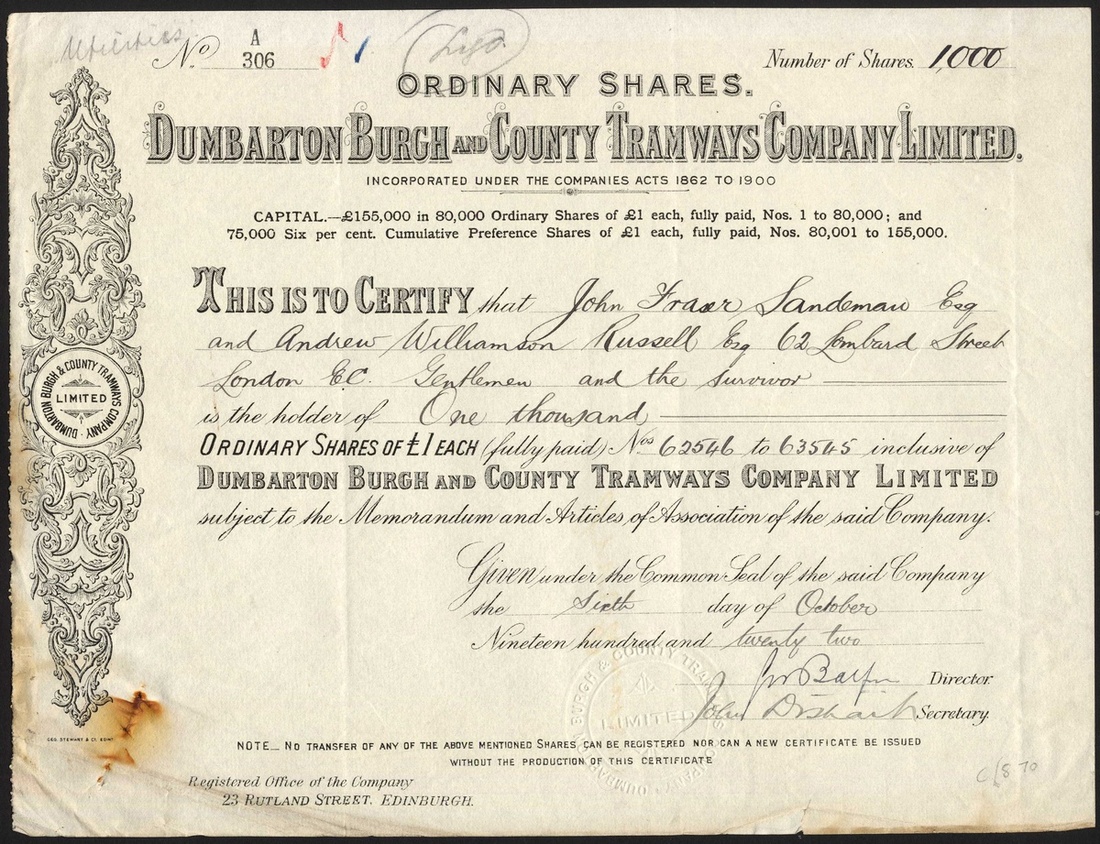 Utilities
No. A 306
Number of Shares. 1,000
ORDINARY SHARES.
DUMBARTON BURGH AND COUNTY TRAMWAYS COMPANY LIMITED.
INCORPORATED UNDER THE COMPANIES ACTS 1862 TO 1900
CAPITAL.—£155,000 in 80,000 Ordinary Shares of £1 each, fully paid, Nos. 1 to 80,000; and
75,000 Six per cent. Cumulative Preference Shares of £1 each, fully paid, Nos. 80,001 to 155,000.
THIS IS TO CERTIFY that John Fraser Sandeman Esq
and Andrew Williamson Russell Esq 62 Lombard Street
London E.C. Gentlemen and the survivor
is the holder of One thousand
ORDINARY SHARES OF £1 EACH (fully paid) Nos 62546 to 63545 inclusive of
DUMBARTON BURGH AND COUNTY TRAMWAYS COMPANY LIMITED
subject to the Memorandum and Articles of Association of the said Company.
Given under the Common Seal of the said Company
the Sixth day of October
Nineteen hundred and twenty two
Director.
John Secretary.
NOTE_ NO TRANSFER OF ANY OF THE ABOVE MENTIONED SHARES CAN BE REGISTERED NOR CAN A NEW CERTIFICATE BE ISSUED
WITHOUT THE PRODUCTION OF THIS CERTIFICATE
Registered Office of the Company
23 RUTLAND STREET, EDINBURGH.
DUMBARTON BURGH & COUNTY TRAMWAYS COMPANY
LIMITED
GEO. STEWART & CO. EDINR
DUMBARTON BURGH & COUNTY TRAMWAYS COMPANY
LIMITED